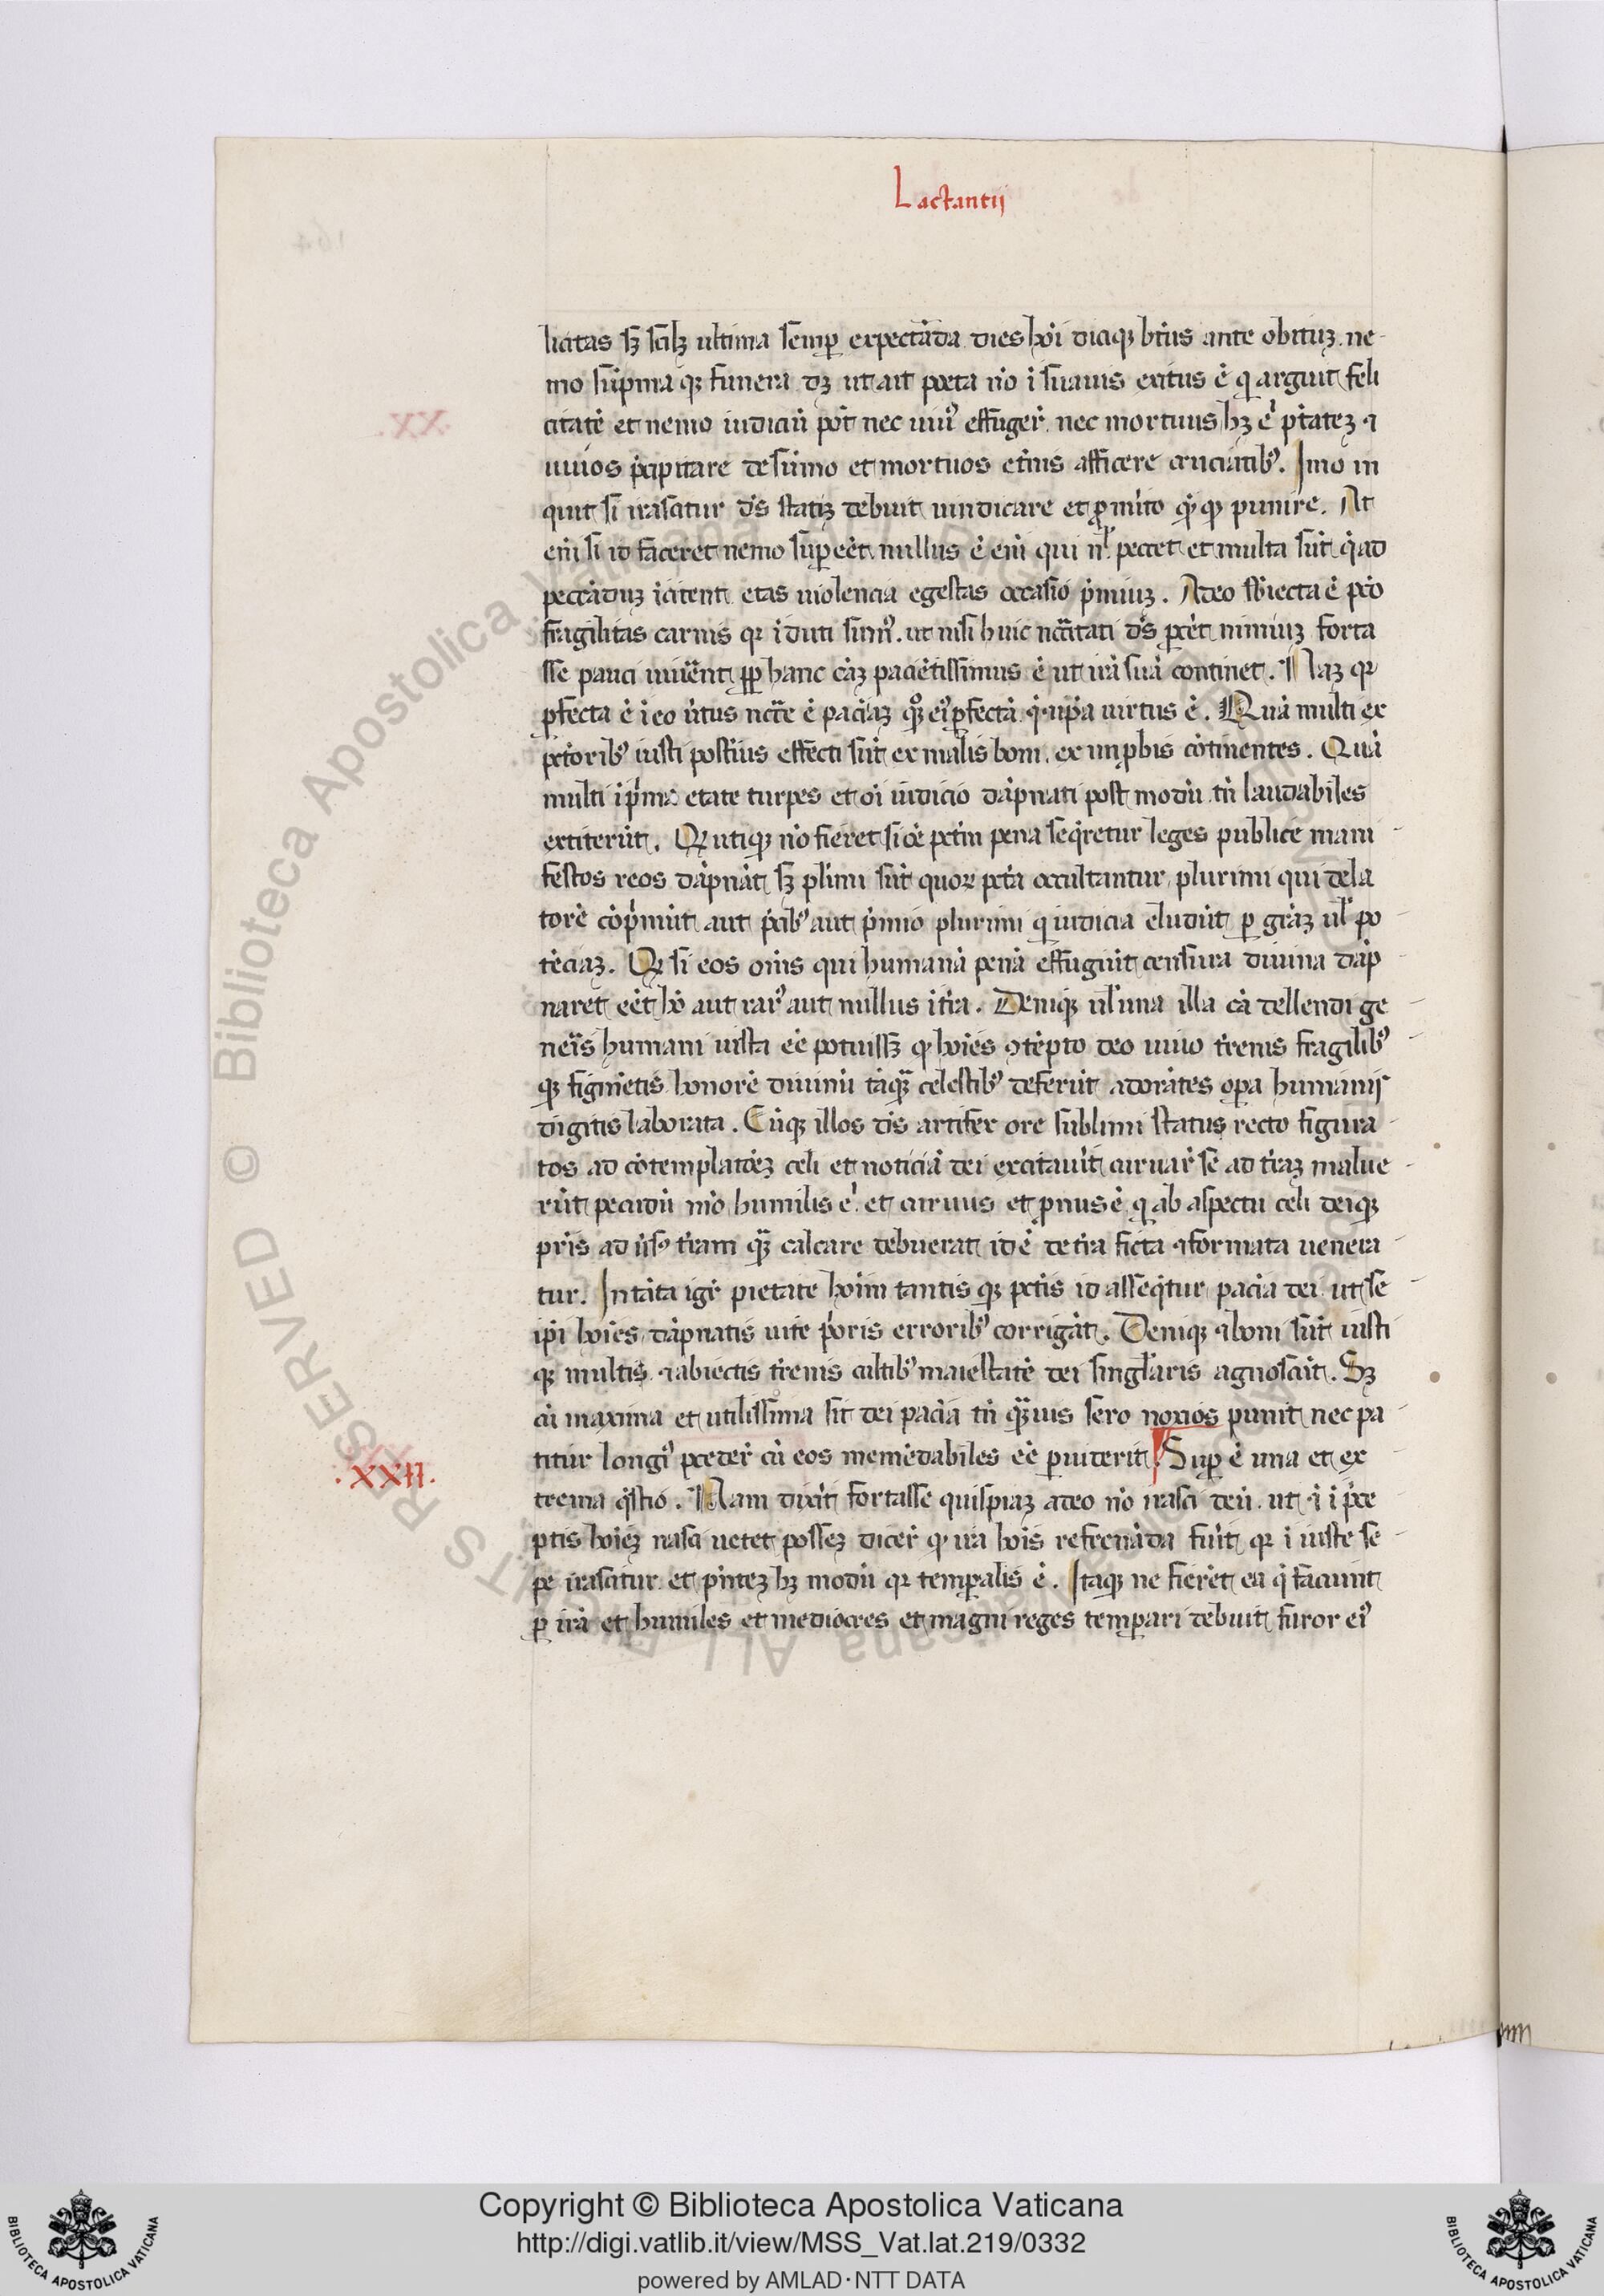 Lactantii
licitas sʒ scilʒ ultima semꝑ expectāda dies hōi diciqꝫ btūs ante obituʒ. ne-
mo sup̄ma qꝫ funera dʒ ut ait poeta nō ī suauis exitus ē q arguit feli
citatē et nemo iudiciū pōt nec uiuꝰ effuger̄ nec mortuus hʒ ēī ptāteʒ ⁊
uiuos p̄cipitare desūmo et mortuos etn̄is afficere cruciatibꝰ. Imo in
quit si irascatur dēs statiʒ debuit uindicare et ꝓ mīto quēqꝫ punire. At
enī si id faceret nemo suꝑeēt nullus ē enī qui nl̄ peccet et multa sūt q̄ ad
peccāduʒ īcitent etas uiolencia egestas occasio p̄miuʒ. Adeo sbiecta ē pctō
fragilitas carnis qꝛ īduti sumꝰ. ut nisi huic nccītati dēs ꝑcēt nimiuʒ forta
sse pauci uiuēnt ꝓp hanc cāʒ paciētissimus ē ut irā suā continet. Naʒ qꝛ
ꝑfecta ē ī eo ūtus nccē ē pacīaʒ quoqꝫ eiꝰ ꝑfectā q̄ ⁊ ip̄a uirtus ē. Quā multi ex
pctōribꝰ iusti postīus effecti sūt ex malis boni. ex imꝓbis cōtinentes. Quā
multi ī p̄ma etate turpes et oī iudicio dāpnati post modū tn̄ laudabiles
extiterūt. Qꝛ utiqꝫ nō fieret si oē pctm̄ pena seqretur leges publice mani-
festos reos dāpnāt sʒ pl̄imi sūt quoꝝ pctā occultantur, plurimi qui dela
torē cōp̄mūt aut p̄cibꝰ aut p̄mio plurimi q iudicia eludūt ꝑ grāʒ ul̄ po-
tēciaʒ. Qꝛ si eos om̄s qui humanā penā effugiūt censura diuina dāp-
naret eēt hō aut rarꝰ aut nullus ī tr̄a. Deniqꝫ ul̄ una illa cā dellendi ge-
neīs humani iusta eē potuisʒ qꝫ hoīes ꝯtēpto deo uiuo tr̄enis fragilibꝰ
qꝫ figmētis honorē diuinū tāqꝫ celestibꝰ deferūt adorātes oꝑa humanis
digitis laborata. Cūqꝫ illos dēs artifex ore sublimi status recto figura-
tos ad cōtemplatōeʒ celi et noticiā dei excitauīt curuar̄ se ad tr̄aʒ malue-
rūt pecudū mō humilis ē et curuus et pnus ē q ab aspectu celi deiqꝫ
pr̄is ad iīsꝰ tr̄am q̄ calcare debuerat id ē de tr̄a ficta ⁊ formata uenera-
tur. In tāta igr̄ pietate hoīm tantis qꝫ pctis id asseqtur pacīa dei ut se-
ip̄i hoīes dāpnatis uite p̄oris erroribꝰ corrigāt. Deniqꝫ ⁊ boni sūt iusti
qꝫ multis ⁊ abiectis tr̄enis cultibꝰ maiestatē dei singl̄aris agnoscūt. Sʒ
cū maxima et utilissima sit dei pacīa tn̄ qꝫuis sero noxios punit nec pa-
titur longiꝰ ꝓceder̄ cū eos inemēdabiles eē ꝑuiderit. Suꝑ ē una et ex-
·XXII·
trema q̄stio. Nam dixīt fortasse quispiaʒ adeo nō irasci deū. ut ⁊ ī p̄ce-
ptis hoīeʒ irasci uetet possʒ dicer̄ qꝫ ira hoīs refrenāda fuīt qꝛ ī iuste se-
pe irascitur et p̄nteʒ hʒ modū qꝛ temꝑalis ē. Itaqꝫ ne fierēt ea q̄ faciunt
ꝑ irā et humiles et mediocres et magni reges temꝑari debuit furor eiꝰ
Copyright © Biblioteca Apostolica Vaticana
http://digi.vatlib.it/view/MSS_Vat.lat.219/0332
powered by AMLAD·NTT DATA
BIBLIOTECA APOSTOLICA VATICANA
BIBLIOTECA APOSTOLICA VATICANA